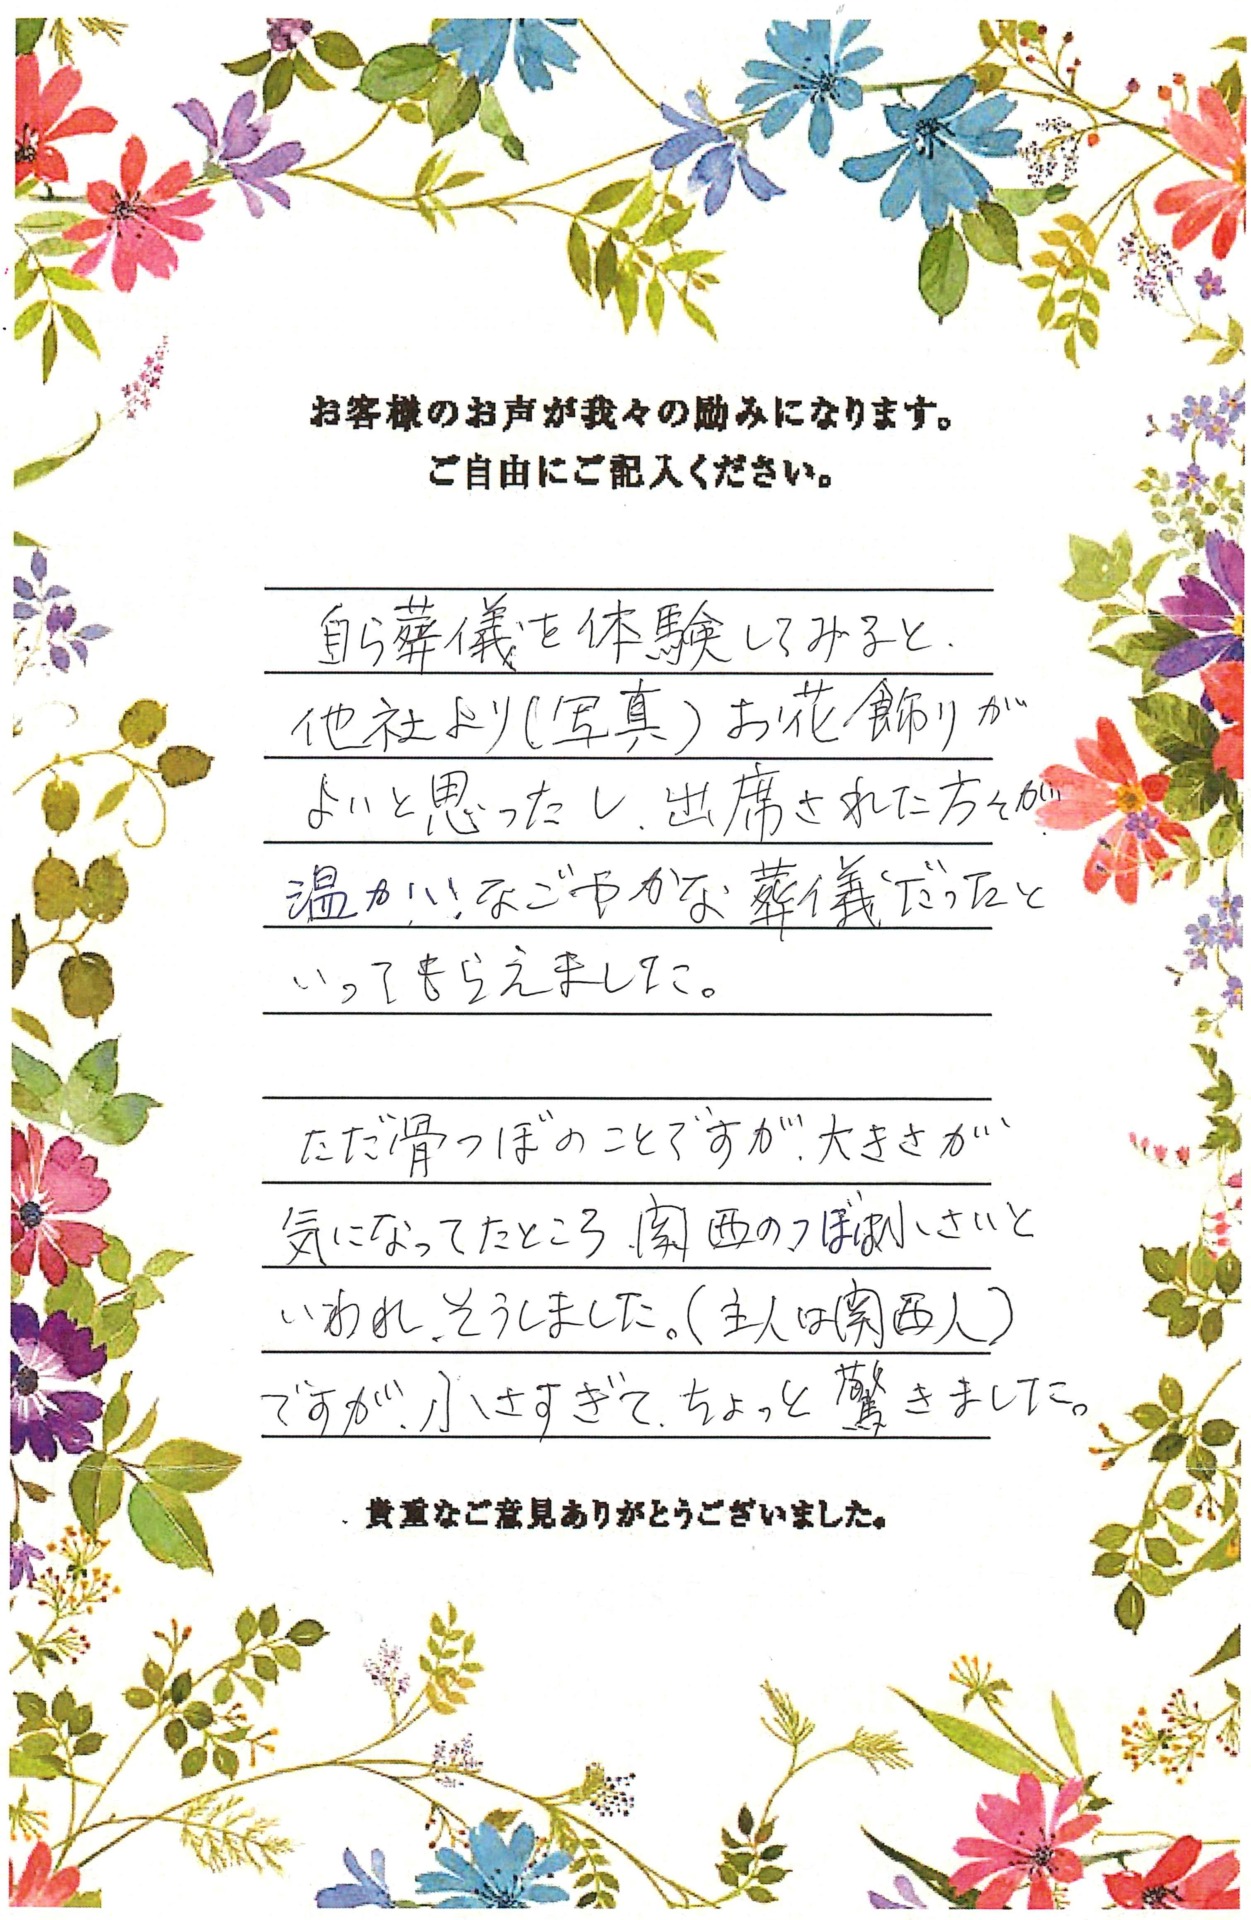 お客様のお声が我々の励みになります。
ご自由にご記入ください。
自ら葬儀を体験してみると、
他社より(写真)お花飾りが
よいと思ったし、出席された方々が
温かい、なごやかな葬儀だったと
いってもらえました。
ただ骨つぼのことですが、大きさが
気になってたところ、関西のつぼは小さいと
いわれ、そうしました。(主人は関西人)
ですが、小さすぎて、ちょっと驚きました。
貴重なご意見ありがとうございました。